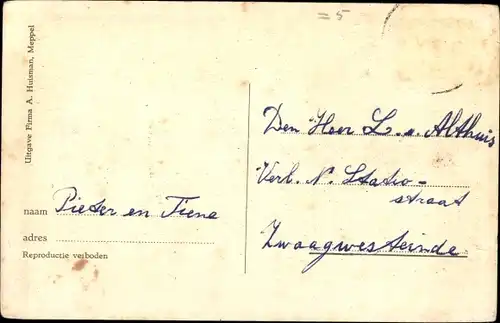 = 5
Uitgave Firma A. Huisman, Meppel
naam Pieter en Tiene
adres
Reproductie verboden
Den Heer L. v. Althuis
Verl. N. Statio-
straat
Zwaagwesteinde